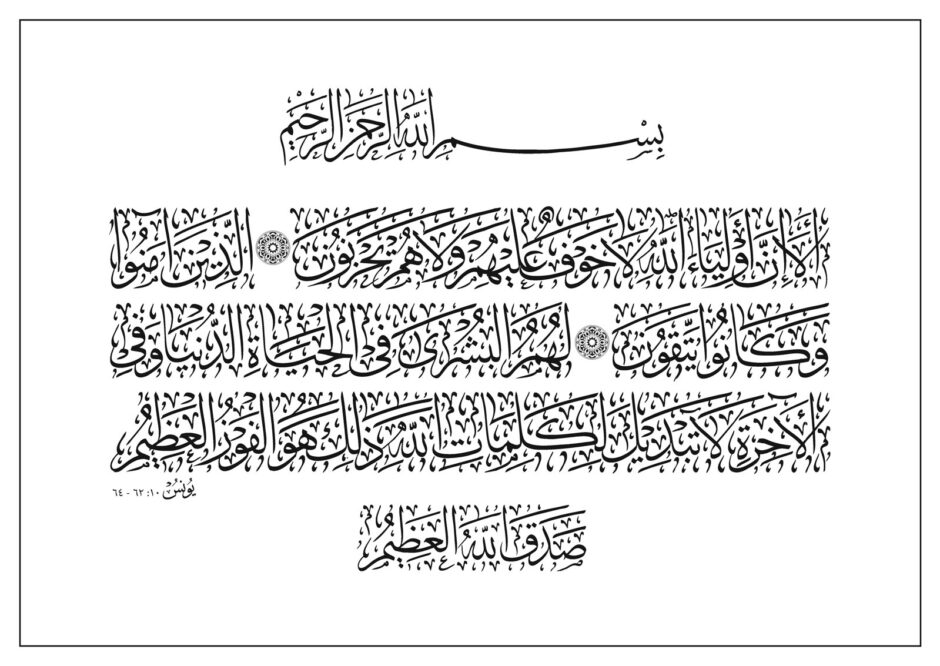 بِسْمِ اللَّهِ الرَّحْمَنِ الرَّحِيمِ
أَلَا إِنَّ أَوْلِيَاءَ اللَّهِ لَا خَوْفٌ عَلَيْهِمْ وَلَا هُمْ يَحْزَنُونَ ۝ الَّذِينَ آمَنُوا
وَكَانُوا يَتَّقُونَ ۝ لَهُمُ الْبُشْرَى فِي الْحَيَاةِ الدُّنْيَا وَفِي
الْآخِرَةِ لَا تَبْدِيلَ لِكَلِمَاتِ اللَّهِ ذَلِكَ هُوَ الْفَوْزُ الْعَظِيمُ
يُونُسْ ١٠: ٦٢ - ٦٤
صَدَقَ اللَّهُ الْعَظِيمُ